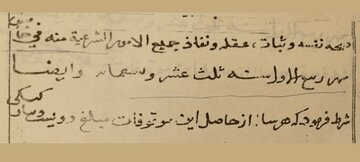 نفسه وثبات عقله ونفاذ جميع الامور الشرعية منه في
ربيع الاول سنة ثلث عشر وسبعمائه وايضا
شرط فرمود که هر سال از حاصل این موقوفات مبلغ دویست